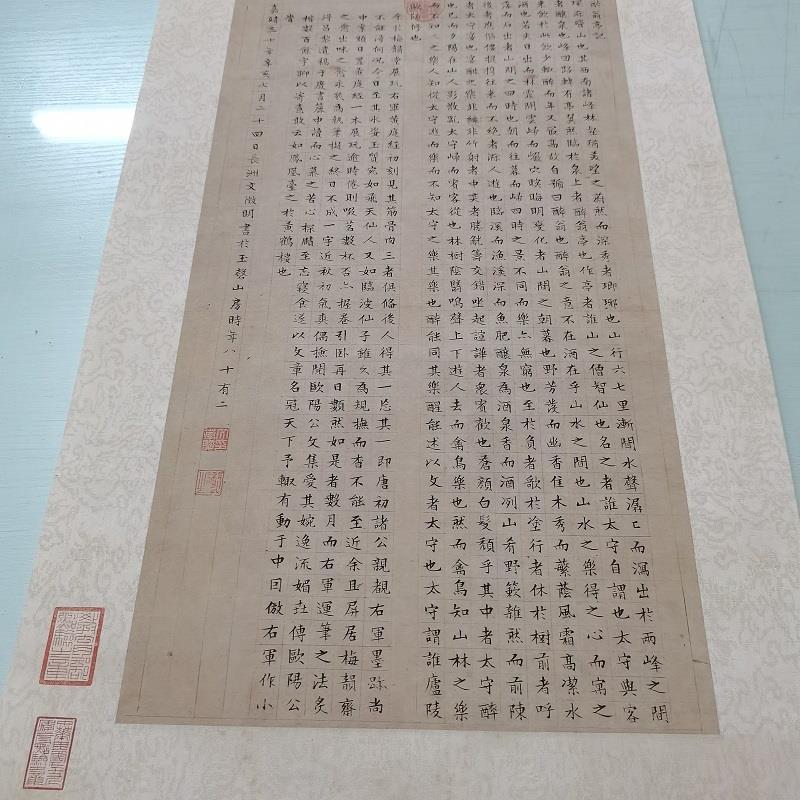 翁亭記
環滁皆山也其西南諸峰林壑尤美望之蔚然而深秀者瑯琊也山行六七里漸聞水聲潺〻而瀉出於兩峰之間
者釀泉也峰回路轉有亭翼然臨於泉上者醉翁亭也作亭者誰山之僧智仙也名之者誰太守自謂也太守與客
來飲於此飲少輒醉而年又最高故自號曰醉翁也醉翁之意不在酒在乎山水之間也山水之樂得之心而寓之
酒也若夫日出而林霏開雲歸而巖穴暝晦明變化者山間之朝暮也野芳發而幽香佳木秀而繁蔭風霜高潔水
落而石出者山間之四時也朝而往暮而歸四時之景不同而樂亦無窮也至於負者歌於塗行者休於樹前者呼
後者應傴僂提攜往來而不絕者滁人遊也臨溪而漁溪深而魚肥釀泉為酒泉香而酒冽山肴野蔌雜然而前陳
者太守宴也宴酣之樂非絲非竹射者中奕者勝觥籌交錯坐起諠譁者衆賓歡也蒼顏白髮頹乎其中者太守醉
也已而夕陽在山人影散亂太守歸而賓客從也林樹陰翳鳴聲上下遊人去而禽鳥樂也然而禽鳥知山林之樂
而不知人之樂人知從太守遊而樂而不知太守之樂其樂也醉能同其樂醒能述以文者太守也太守謂誰廬陵
歐陽修也
余於梅韻堂展玩右軍黃庭經初刻見其筋骨肉三者俱備後人得其一忘其一即唐初諸公親覩右軍墨跡尚
不能得何況今日至其水姿玉質宛如飛天仙人又如臨波仙子雖久為規撫而杳不能至近余且屏居梅韻齋
中案頭日置黃庭經一本展玩逾時倦則啜茗數杯否亦握卷引卧再日數然如是者數月而右軍運筆之法炙
之漸出味之漸永為執筆擬之終日不成一字近秋初氣爽偶閱歐陽公文集愛其婉逸流媚且傳歐陽公
得昌黎遺稿于廢書簏中讀而心慕之苦心探賾至忘寢食遂以文章名冠天下予輒有動于中因倣右軍作小
楷數百餘字聊以寄意敢云如鳳凰臺之於黃鶴樓也
嘉靖三十年辛亥七月二十四日長洲文徵明書於玉磬山房時年八十有二